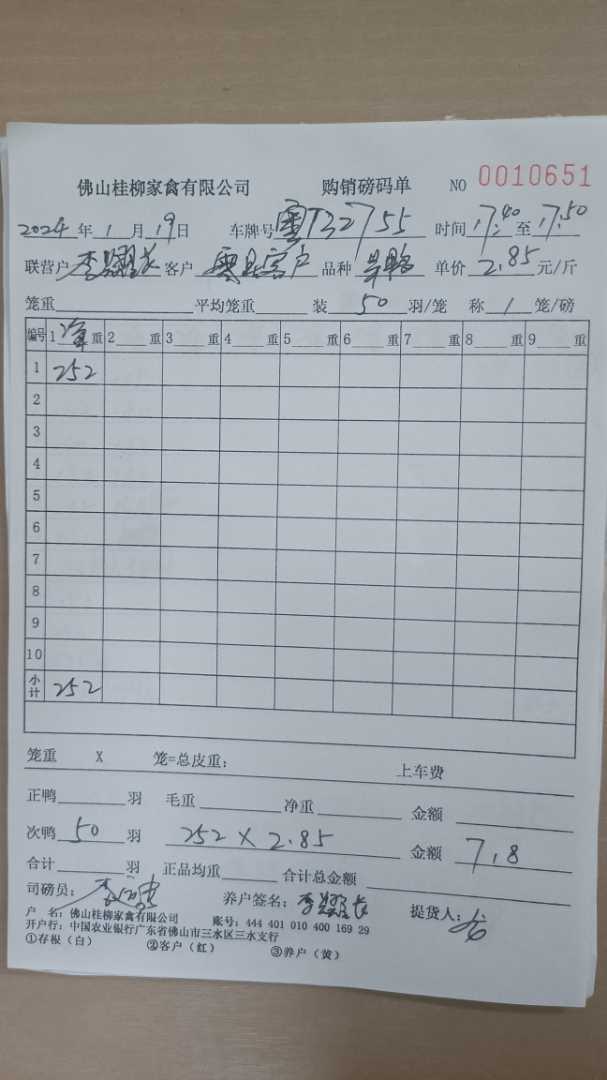 佛山桂柳家禽有限公司 购销磅码单 NO 0010651
2024年 1 月 19 日 车牌号 T32755 时间 17:40 至 17:50
联营户 李 客户 客户 品种 鸭 单价 2.85 元/斤
笼重 平均笼重 装 50 羽/笼 称 1 笼/磅
编号 1 净 重 2 重 3 重 4 重 5 重 6 重 7 重 8 重 9 重
1 252
2
3
4
5
6
7
8
9
10
小计 252
笼重 X 笼=总皮重: 上车费
正鸭 羽 毛重 净重 金额
次鸭 50 羽 252 X 2.85 金额 718
合计 羽 正品均重 合计总金额
司磅员: 养户签名: 李 提货人:
户 名: 佛山桂柳家禽有限公司 账号: 444 401 010 400 169 29
开户行: 中国农业银行广东省佛山市三水区三水支行
①存根(白) ②客户(红) ③养户(黄)